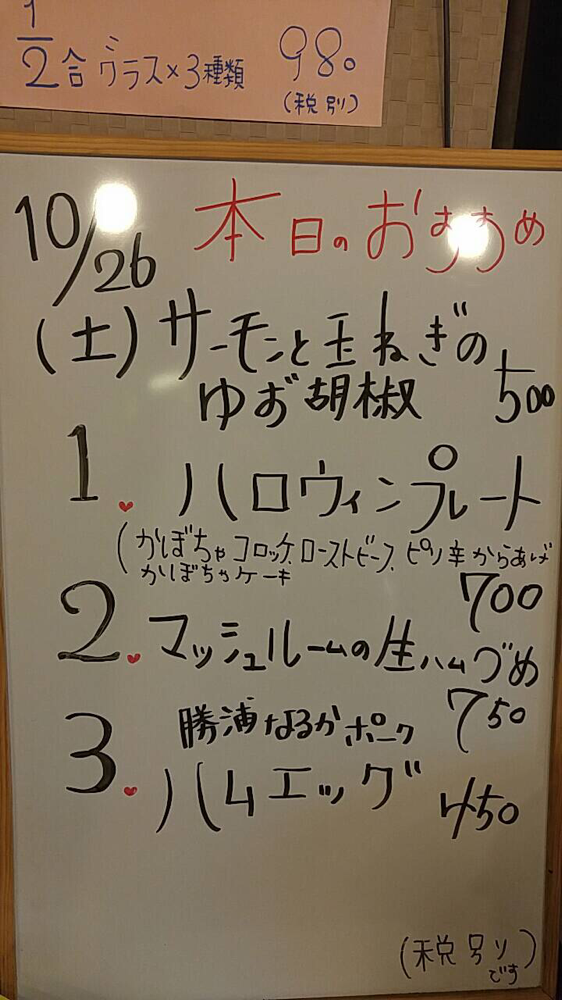 1/2合 グラス×3種類 980
(税別)
10/26 本日のおすすめ
(土) サーモンと玉ねぎの
ゆず胡椒 500
1. ハロウィンプレート
(かぼちゃコロッケ、ローストビーフ、ピリ辛からあげ
かぼちゃケーキ 700
2. マッシュルームの生ハムづめ
750
勝浦なるかポーク
3. ハムエッグ 450
(税別り)
です